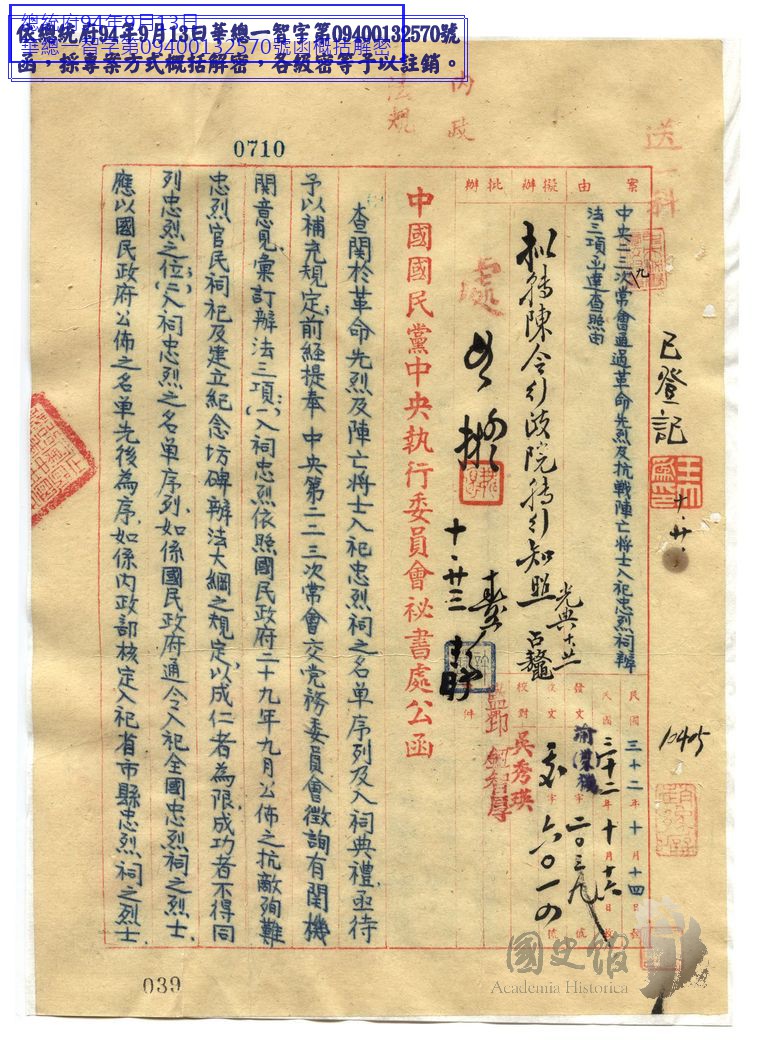 依總統府94年9月13日華總一智字第09400132570號
函，採專案方式概括解密，各級密等予以註銷。
總統府94年9月13日
華總一智字第09400132570號函概括解密
0710
內政
法規
送一科
已登記
十、廿、
10405
案由
擬辦
批辦
中央二三次常會通過革命先烈及抗戰陣亡將士入祀忠烈祠辦
法三項函達查照由
拟轉陳令行政院轉行知照
處
十、廿三
民國三十二年十月十四日發
民國三十二年十月十六日收
發文渝漢機字二〇三九號
收文字六〇一四號
校對吳秀瑛
監印
中國國民黨中央執行委員會祕書處公函
查關於革命先烈及陣亡將士入祀忠烈祠之名單序列及入祠典禮，亟待
予以補充規定，前經提奉 中央第二二三次常會交党務委員會徵詢有關機
關意見，彙訂辦法三項：(一)入祠忠烈依照國民政府二十九年九月公佈之抗敵殉難
忠烈官民祠祀及建立紀念坊碑辦法大綱之規定，以成仁者為限，成功者不得同
列忠烈之位；(二)入祠忠烈之名單序列，如係國民政府通令入祀全國忠烈祠之烈士，
應以國民政府公佈之名單先後為序，如係內政部核定入祀省市縣忠烈祠之烈士，
039
國史館
Academia Historica